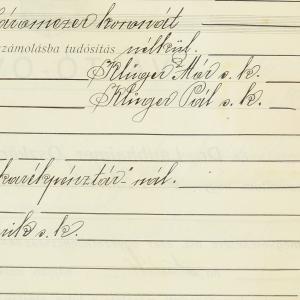 háromezer koronát
számolásba tudósítás nélkül.
Klüger Mór s. k.
Klüger Pál s. k.
takarékpénztár"-nál.
nik s. k.